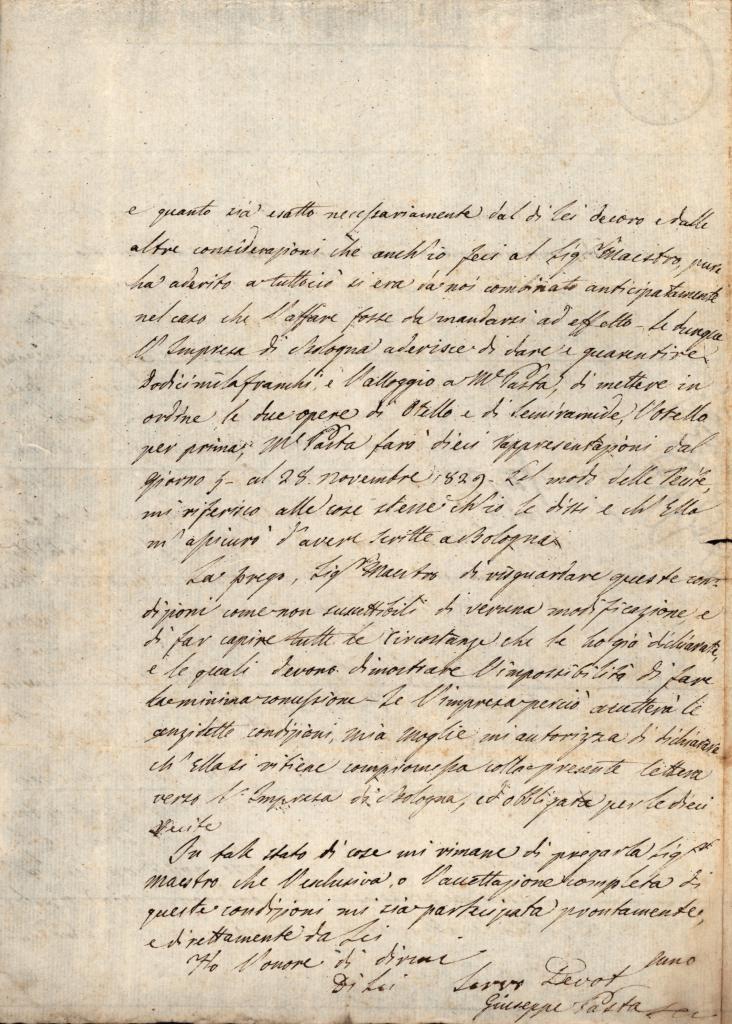 e quanto sia esatto necessariamente dal di lei decoro e dalle
altre considerazioni che anch'io feci al Sig.r Maestro, pure
ha aderito a tuttociò si era da noi combinato anticipatamente
nel caso che l'affare fosse da mandarsi ad effetto - Se dunque
l'Impresa di Bologna aderisce di dare e guarentire
Dodicimila franchi, e l'alloggio a M.e Pasta, di mettere in
ordine le due opere di Otello e di Semiramide, l'Otello
per prima, M.e Pasta farà dieci rappresentazioni dal
giorno al 28. novembre 1829. Sul modo delle Recite,
mi riferisco alle cose stesse ch'io le dissi e ch'Ella
m'assicurò d'avere scritte a Bologna.
La prego, Sig.r Maestro di risguardare queste con-
dizioni come non suscettibili di veruna modificazione e
di far capire tutte le circostanze che le ho già dichiarate,
e le quali devono dimostrare l'impossibilità di fare
la minima concessione - Se l'impresa perciò accetterà le
anzidette condizioni, mia moglie mi autorizza di dichiarare
ch'Ella si ritiene compromessa colla presente lettera
verso l'Impresa di Bologna, ed obbligata per le dieci
Recite
In tale stato di cose mi rimane di pregarla Sig.r
Maestro che l'esclusiva, o l'accettazione completa di
queste condizioni mi sia partecipata prontamente,
e direttamente da Lei
Ho l'onore di dirmi
Di Lei Servo Devot.mo
Giuseppe Pasta